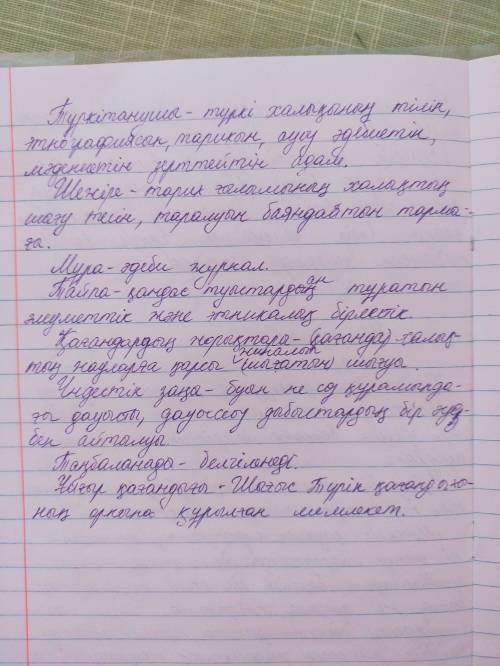 Түркітанушы - түркі халықының тілін,
этнографиясын, тарихын, ауыз әдебиетін,
мәдениетін зерттейтін адам.
Шежіре - тарих ғалымының халықтың
шығу тегін, таралуын баяндайтын тарма-
ғы.
Мұра - әдеби журнал.
Тайпа - қандас туыстардың ан тұратын
әлуметтік және этникалық бірлестік.
Қағандардың жорықтара - (қағанда) халық-
тың жауларға қарсы жиналып (шығатын) шығуы.
Үндестік заңы - буын не сөз құрамында-
ғы дауысты, дауыссыз дыбыстардың бір
бен айталуы
Таңбаланады - белгіленеді.
Ұйғыр қағандығы - Шығыс Түрік қағандығы-
ның орнына құрылған мемлекет.